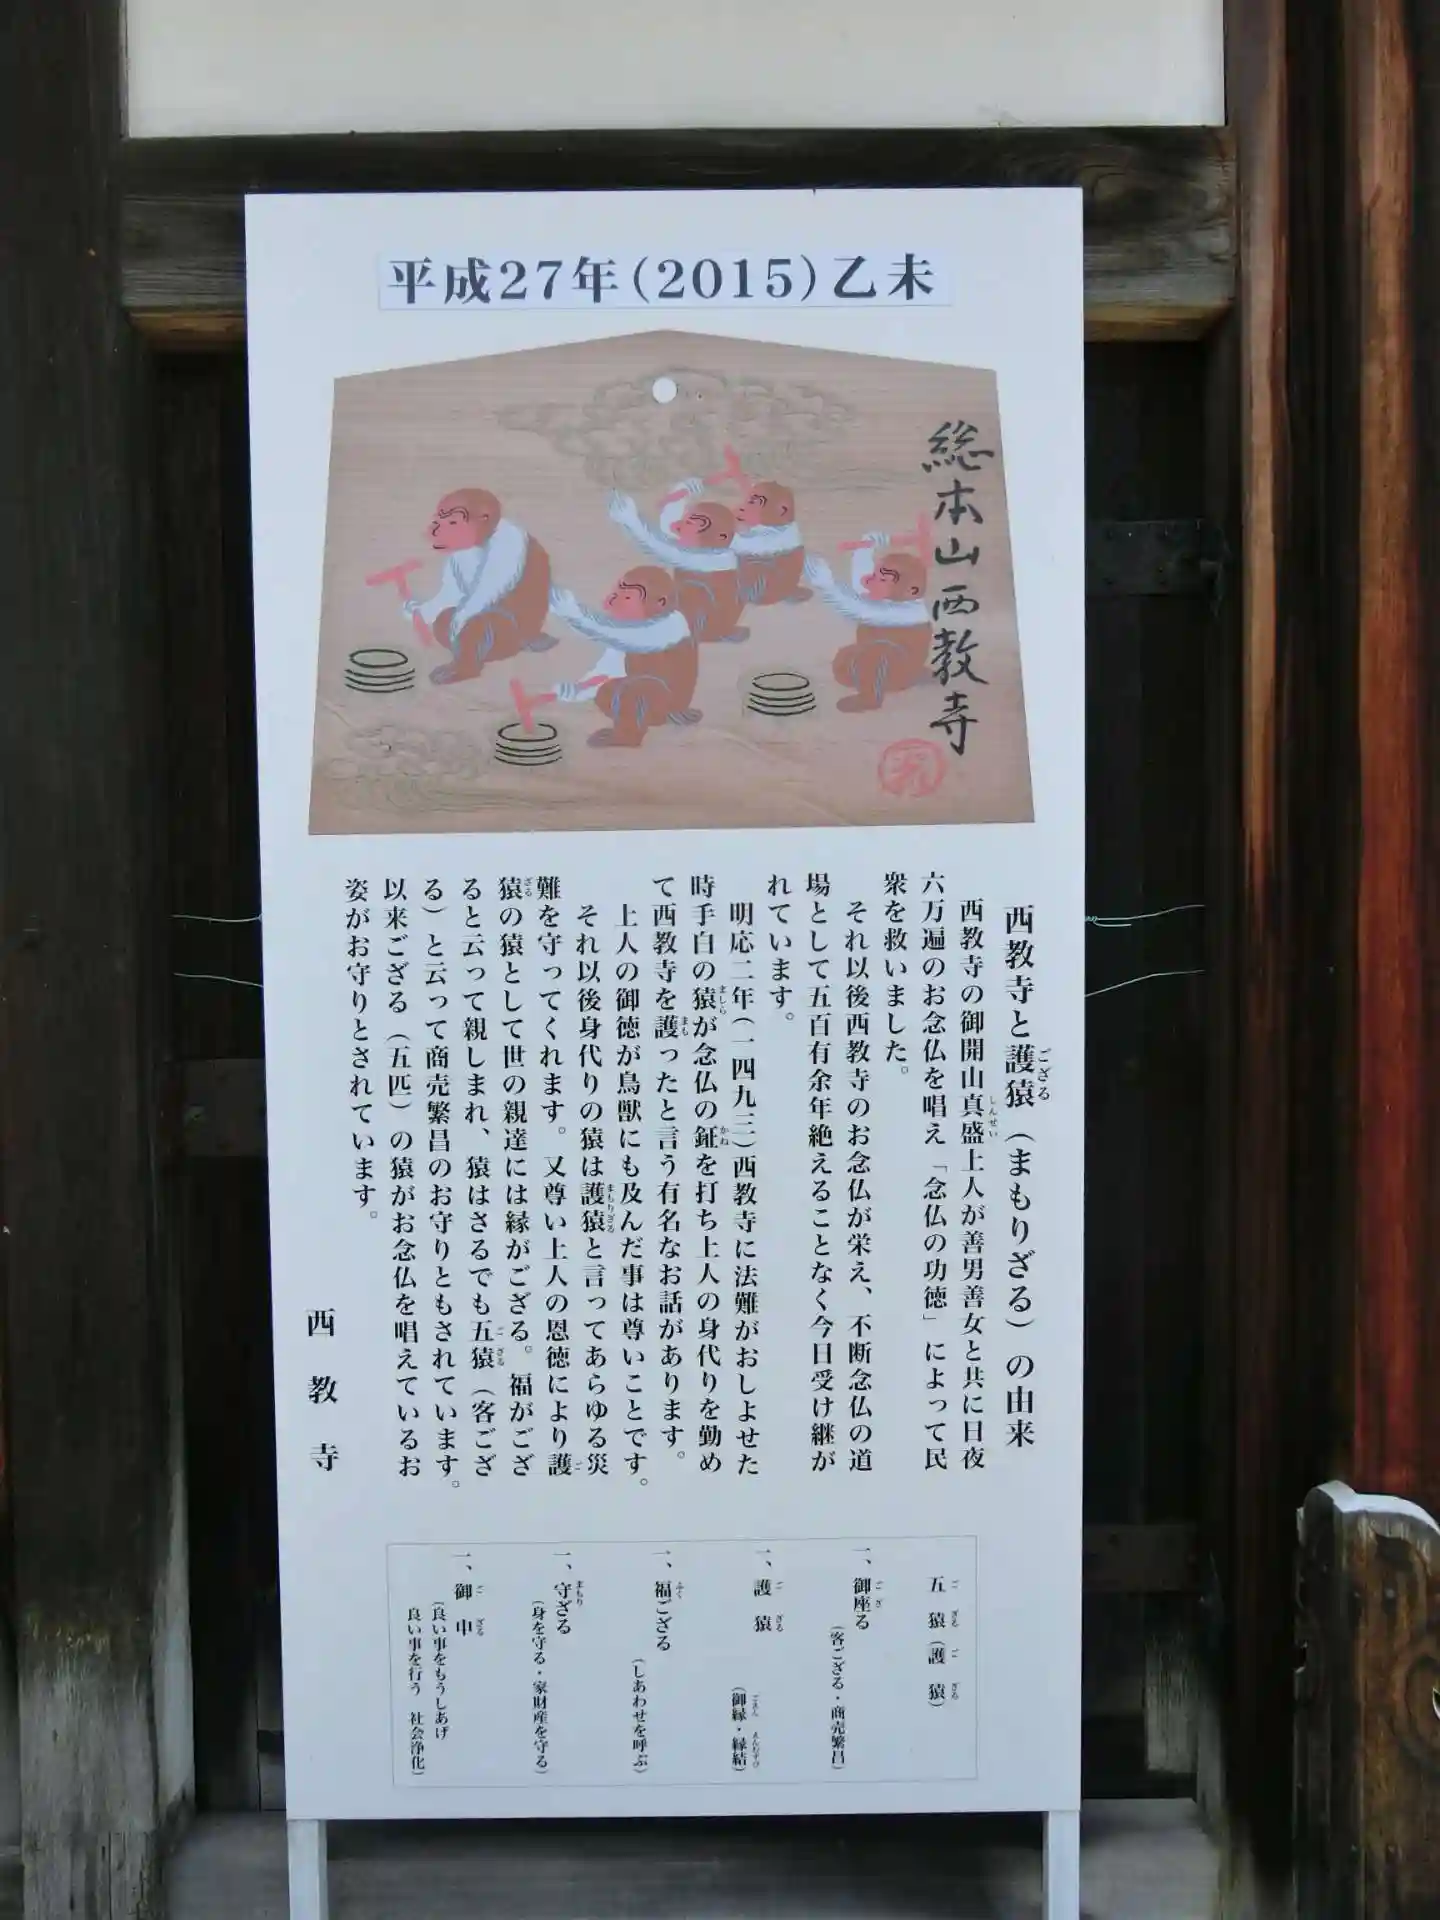 平成27年(2015)乙未
総本山西教寺
西教寺と護猿(まもりざる)の由来
ござる
西教寺の御開山真盛上人が善男善女と共に日夜
しんせい
六万遍のお念仏を唱え「念仏の功徳」によって民
衆を救いました。
それ以後西教寺のお念仏が栄え、不断念仏の道
場として五百有余年絶えることなく今日受け継が
れています。
明応二年(一四九三)西教寺に法難がおしよせた
時手白の猿が念仏の鉦を打ち上人の身代りを勤め
ましら
かね
て西教寺を護ったと言う有名なお話があります。
まも
上人の御徳が鳥獣にも及んだ事は尊いことです。
それ以後身代りの猿は護猿と言ってあらゆる災
まもりざる
難を守ってくれます。又尊い上人の恩徳により護
ご
猿の猿として世の親達には縁がござる。福がござ
ざる
ると云って親しまれ、猿はさるでも五猿(客ござ
ござる
る)と云って商売繁昌のお守りともされています。
以来ござる(五匹)の猿がお念仏を唱えているお
姿がお守りとされています。
西教寺
五猿(護猿)
ござる
ござる
一、御座る
ござ
(客ござる・商売繁昌)
一、護猿
ござる
(御縁・縁結)
ごえん
えんむすび
一、福ござる
ふく
(しあわせを呼ぶ)
一、守ざる
まもり
(身を守る・家財産を守る)
一、御申
ござる
(良い事をもうしあげ
良い事を行う 社会浄化)